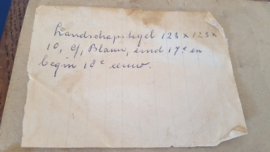 Landschapstegel 128 x 128 x
10, cf, Blauw, eind 17e en
begin 18e eeuw.